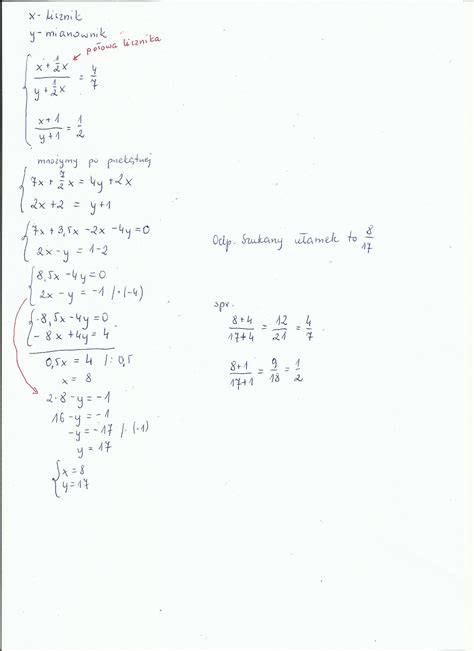 x - licznik
y - mianownik
połowa licznika
{ (x + 1/2 x)/(y + 1/2 x) = 4/7
(x+1)/(y+1) = 1/2
mnożymy po przekątnej
{ 7x + 7/2 x = 4y + 2x
2x + 2 = y + 1
{ 7x + 3,5x - 2x - 4y = 0
2x - y = 1 - 2
{ 8,5x - 4y = 0
2x - y = -1 /·(-4)
{ 8,5x - 4y = 0
- 8x + 4y = 4
0,5x = 4 /: 0,5
x = 8
2·8 - y = -1
16 - y = -1
-y = -17 /·(-1)
y = 17
{ x = 8
y = 17
Odp. Szukany ułamek to 8/17
spr.
(8+4)/(17+4) = 12/21 = 4/7
(8+1)/(17+1) = 9/18 = 1/2